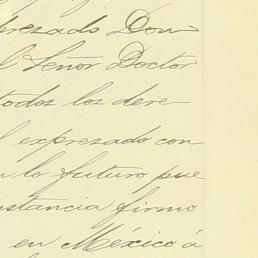 presado Don
l Señor Doctor
todos los dere
l expresado con
lo futuro pue
stancia firmo
en México á